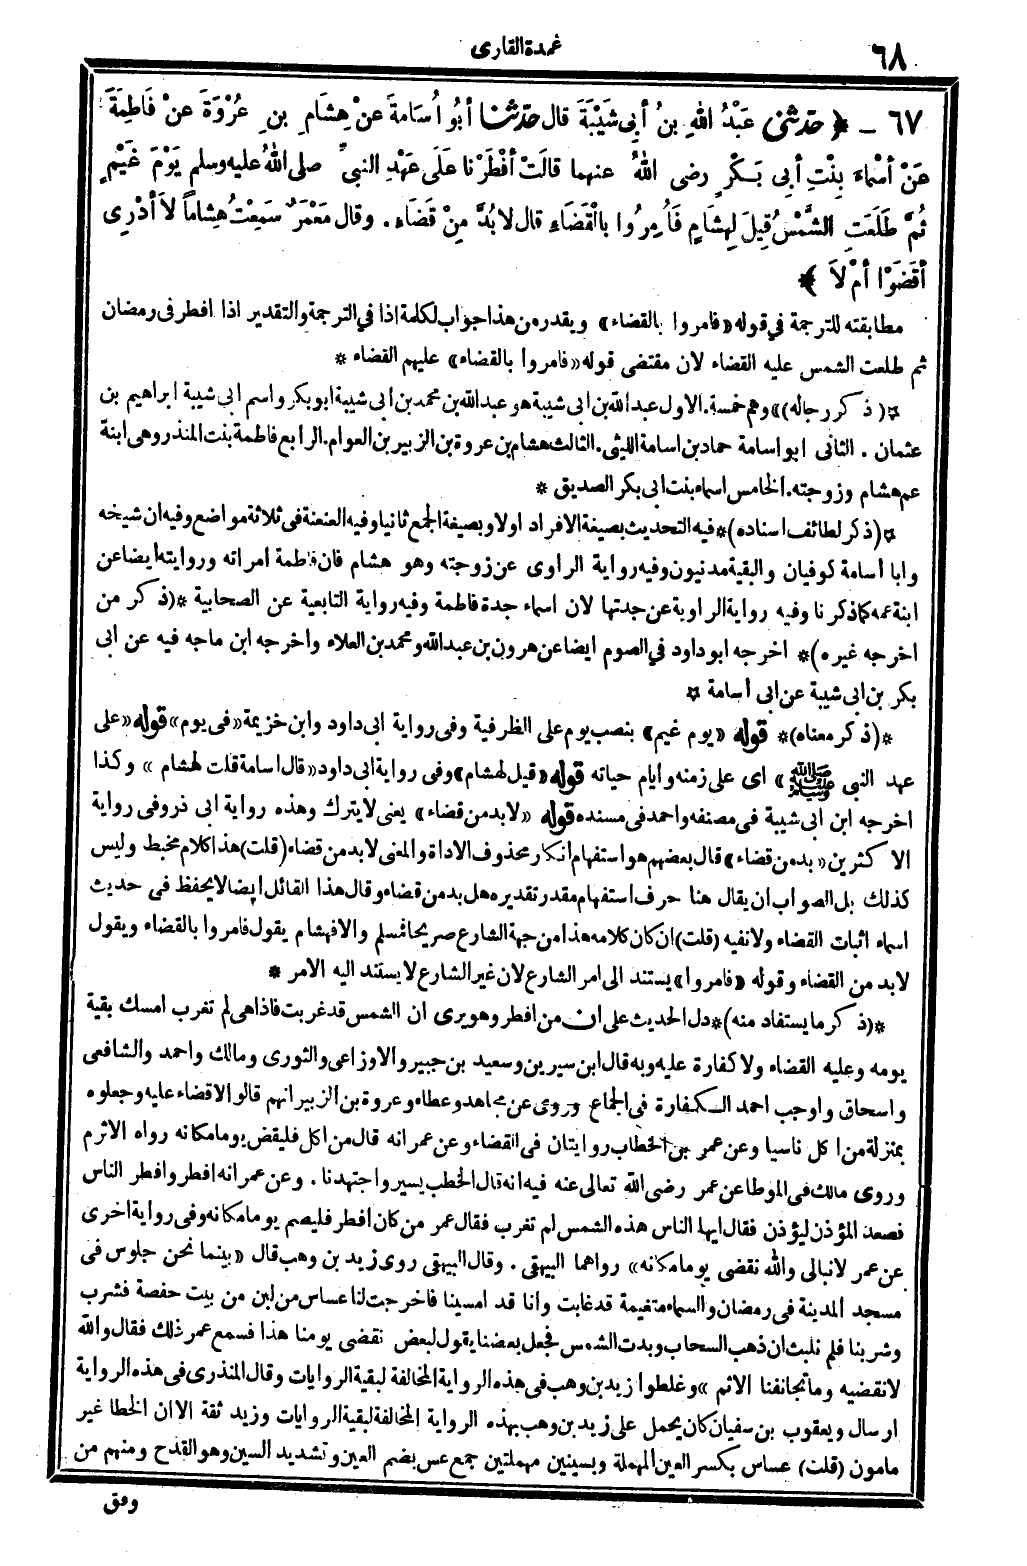 ٦٨
عمدة القارى
٦٧ – ﴿ حَدَّثَنِي عَبْدُ اللهِ بنُ أبِي شَيْبَةَ قال حَدَّثَنَا أبُو أُسَامَةَ عَنْ هِشَامِ بنِ عُرْوَةَ عنْ فَاطِمَةَ
عَنْ أسْمَاءَ بِنْتِ أبِي بَكْرٍ رضى اللهُ عنهما قالَتْ أفْطَرْنا عَلَى عَهْدِ النبيِّ صلى اللهُ عليه وسلم يَوْمَ غَيْمٍ
ثُمَّ طَلَعَتِ الشَّمْسُ قِيلَ لِهِشَامٍ فَأُمِرُوا بالْقَضَاءِ قال لا بُدَّ مِنْ قَضَاءٍ . وقال مَعْمَرٌ سَمِعْتُ هِشاماً لاَ أدْرِى
أقَضَوْا أمْ لاَ ﴾
مطابقته للترجمة في قوله «فامروا بالقضاء» ويقدر من هذا جواب لكلمة اذا في الترجمة والتقدير اذا افطر فى رمضان
ثم طلعت الشمس عليه القضاء لان مقتضى قوله «فامروا بالقضاء» عليهم القضاء *
*( ذكر رجاله)* وهم خمسة. الاول عبد الله بن ابى شيبة هو عبد الله بن محمد بن أبى شيبة ابو بكر واسم ابى شيبة ابراهيم بن
عثمان . الثانى ابو اسامة حماد بن اسامة الليثى. الثالث هشام بن عروة بن الزبير بن العوام. الرابع فاطمة بنت المنذر وهى ابنة
عم هشام وزوجته. الخامس اسماء بنت ابى بكر الصديق *
*(ذكر لطائف اسناده)* فيه التحديث بصيغة الافراد اولا وبصيغة الجمع ثانيا وفيه العنعنة فى ثلاثة مواضع وفيه ان شيخه
وابا أسامة كوفيان والبقية مدنيون وفيه رواية الراوى عن زوجته وهو هشام فان فاطمة امراته وروايته ايضا عن
ابنة عمه كما ذكرنا وفيه رواية الراوية عن جدتها لان اسماء جدة فاطمة وفيه رواية التابعية عن الصحابية *(ذكر من
اخرجه غيره)* اخرجه ابو داود في الصوم ايضا عن هرون بن عبد الله ومحمد بن العلاء واخرجه ابن ماجه فيه عن ابى
بكر بن ابى شيبة عن ابى أسامة *
*(ذكر معناه)* قوله «يوم غيم» بنصب يوم على الظرفية وفى رواية ابى داود وابن خزيمة «فى يوم» قوله «على
عهد النبى ﷺ» اى على زمنه وايام حياته قوله «قيل لهشام» وفى رواية ابى داود «قال اسامة قلت لهشام» وكذا
اخرجه ابن ابى شيبة فى مصنفه واحمد فى مسنده قوله «لا بد من قضاء» يعنى لا يترك وهذه رواية ابى ذر وفى رواية
الاكثرين «بد من قضاء» قال بعضهم هو استفهام انكار محذوف الاداة والمعنى لا بد من قضاء (قلت) هذا كلام مخبط وليس
كذلك بل الصواب ان يقال هنا حرف استفهام مقدر تقديره هل بد من قضاء وقال هذا القائل ايضا لا يحفظ فى حديث
اسماء اثبات القضاء ولا نفيه (قلت) ان كان كلامه هذا من جهة الشارع صريحا فمسلم والا فهشام يقول فامروا بالقضاء ويقول
لا بد من القضاء وقوله «فامروا» يستند الى امر الشارع لان غير الشارع لا يستند اليه الامر *
*(ذكر ما يستفاد منه)* دل الحديث على ان من افطر وهو يرى ان الشمس قد غربت فاذا هى لم تغرب امسك بقية
يومه وعليه القضاء ولا كفارة عليه وبه قال ابن سيرين وسعيد بن جبير والاوزاعى والثورى ومالك واحمد والشافعى
واسحاق واوجب احمد الكفارة فى الجماع وروى عن مجاهد وعطاء وعروة بن الزبير انهم قالوا لا قضاء عليه وجعلوه
بمنزلة من اكل ناسيا وعن عمر بن الخطاب روايتان فى القضاء وعن عمر انه قال من اكل فليقض يوما مكانه رواه الاثرم
وروى مالك فى الموطا عن عمر رضى الله تعالى عنه فيه انه قال الخطب يسير واجتهدنا . وعن عمر انه افطر وافطر الناس
فصعد المؤذن ليؤذن فقال ايها الناس هذه الشمس لم تغرب فقال عمر من كان افطر فليصم يوما مكانه وفى رواية اخرى
عن عمر لا نبالى والله نقضى يوما مكانه» رواهما البيهقى . وقال البيهقى روى زيد بن وهب قال «بينما نحن جلوس فى
مسجد المدينة فى رمضان والسماء متغيمة قد غابت وانا قد امسينا فاخرجت لنا عساس من لبن من بيت حفصة فشرب
وشربنا فلم نلبث ان ذهب السحاب وبدت الشمس فجعل بعضنا يقول لبعض نقضى يومنا هذا فسمع عمر ذلك فقال والله
لا نقضيه وما تجانفنا الاثم» وغلطوا زيد بن وهب فى هذه الرواية المخالفة لبقية الروايات وقال المنذرى فى هذه الرواية
ارسال ويعقوب بن سفيان كان يحمل على زيد بن وهب بهذه الرواية المخالفة لبقية الروايات وزيد ثقة الا ان الخطا غير
مامون (قلت) عساس بكسر العين المهملة وبسينين مهملتين جمع عس بضم العين وتشديد السين وهو القدح ومنهم من
وفق